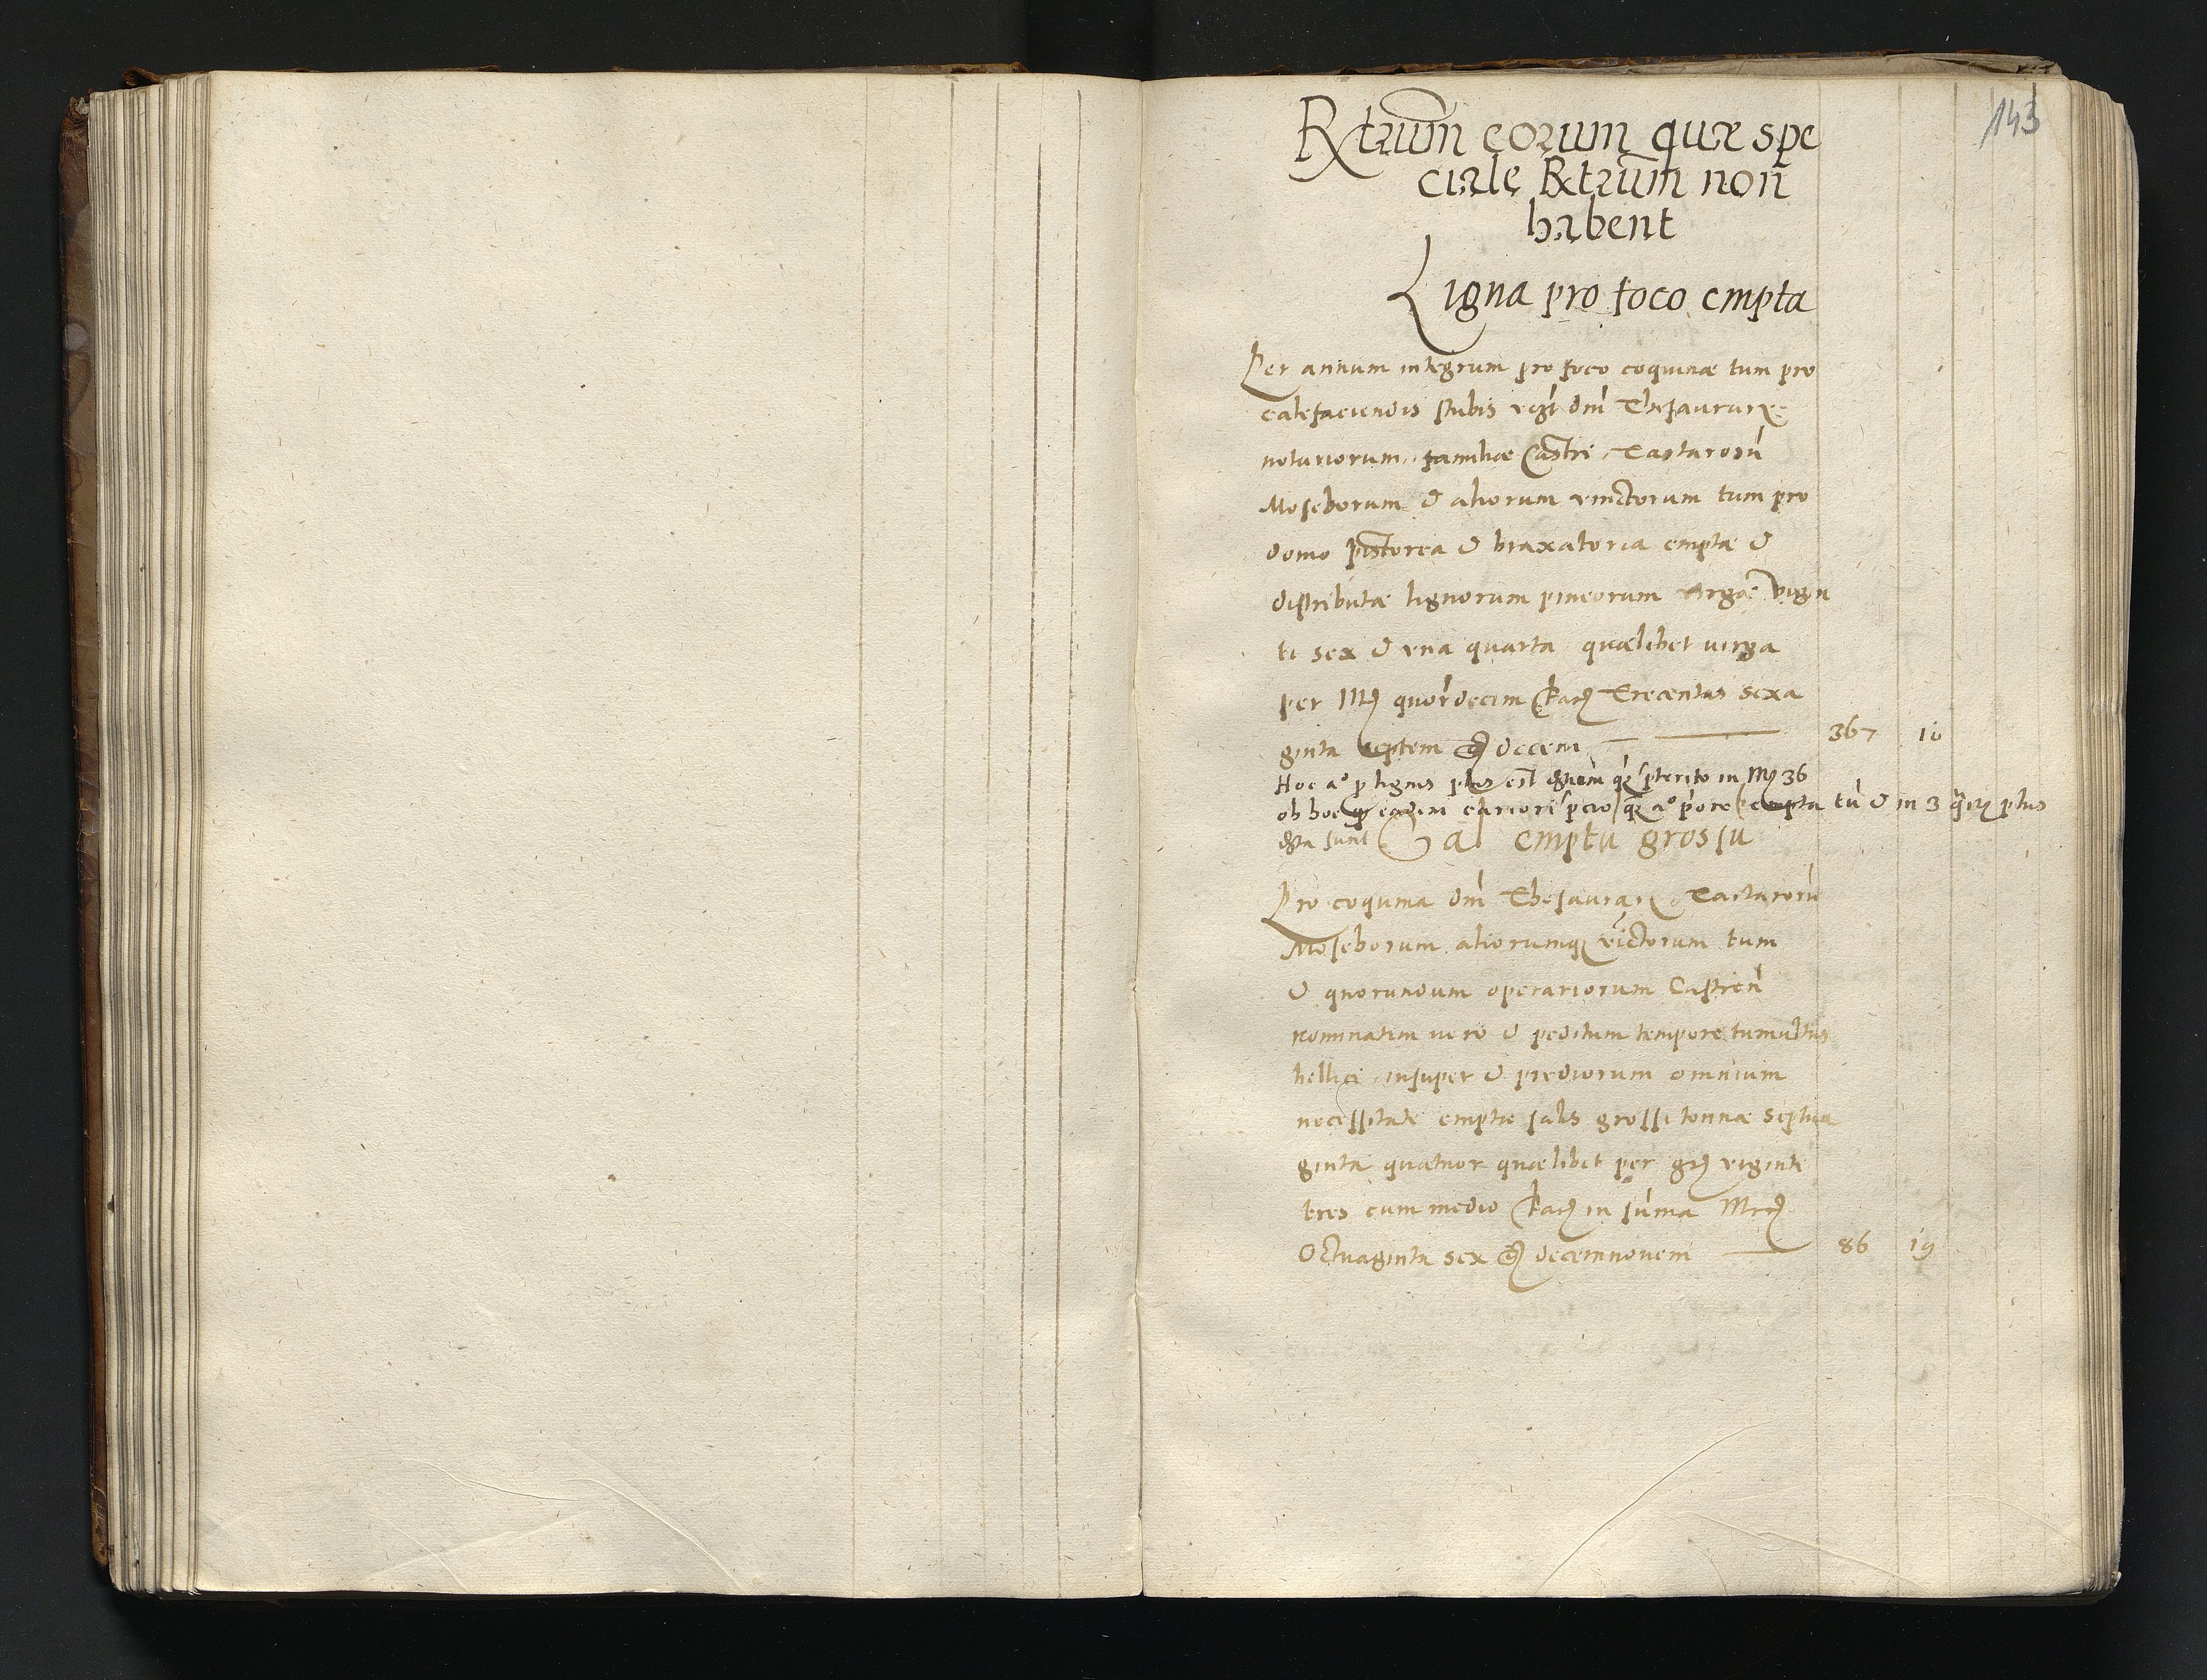 143
Rtrum eorum quæ spe
ciale Rtrum non
habent
Ligna pro foco empta
Per annum integrum pro foco coquinæ tum pro
calefaciendis stubis dni Thesaurarii
notariorum familiæ Castri Tartarorũ
Moschorum & aliorum vinctorum tum pro
domo pistorea & braxatoria emptæ &
distributæ lignorum pineorum virgæ vigin
ti sex & vna quarta quælibet virga
per Mrc quordecim Trecentas sexa
ginta septem decem 367 10
Hoc a° p lignis plus est in Mrc 36
ob hoc eadem cariori pcio empta tũ & in 3 plus
sunt
Sal emptu grossu
Pro coquina dni Thesaurarii Tartarorũ
Moschorum aliorumq vĩctorum tum
& quorundum operariorum Castren
nominatim vero & peditum tempore tumultus
bellici insuper & prediorum omnium
necessitate emptæ salis grossi tonnæ septua
ginta quatuor quælibet per gr viginti
tres cum medio in sũma Mrc
Octuaginta sex decemnovem 86 19